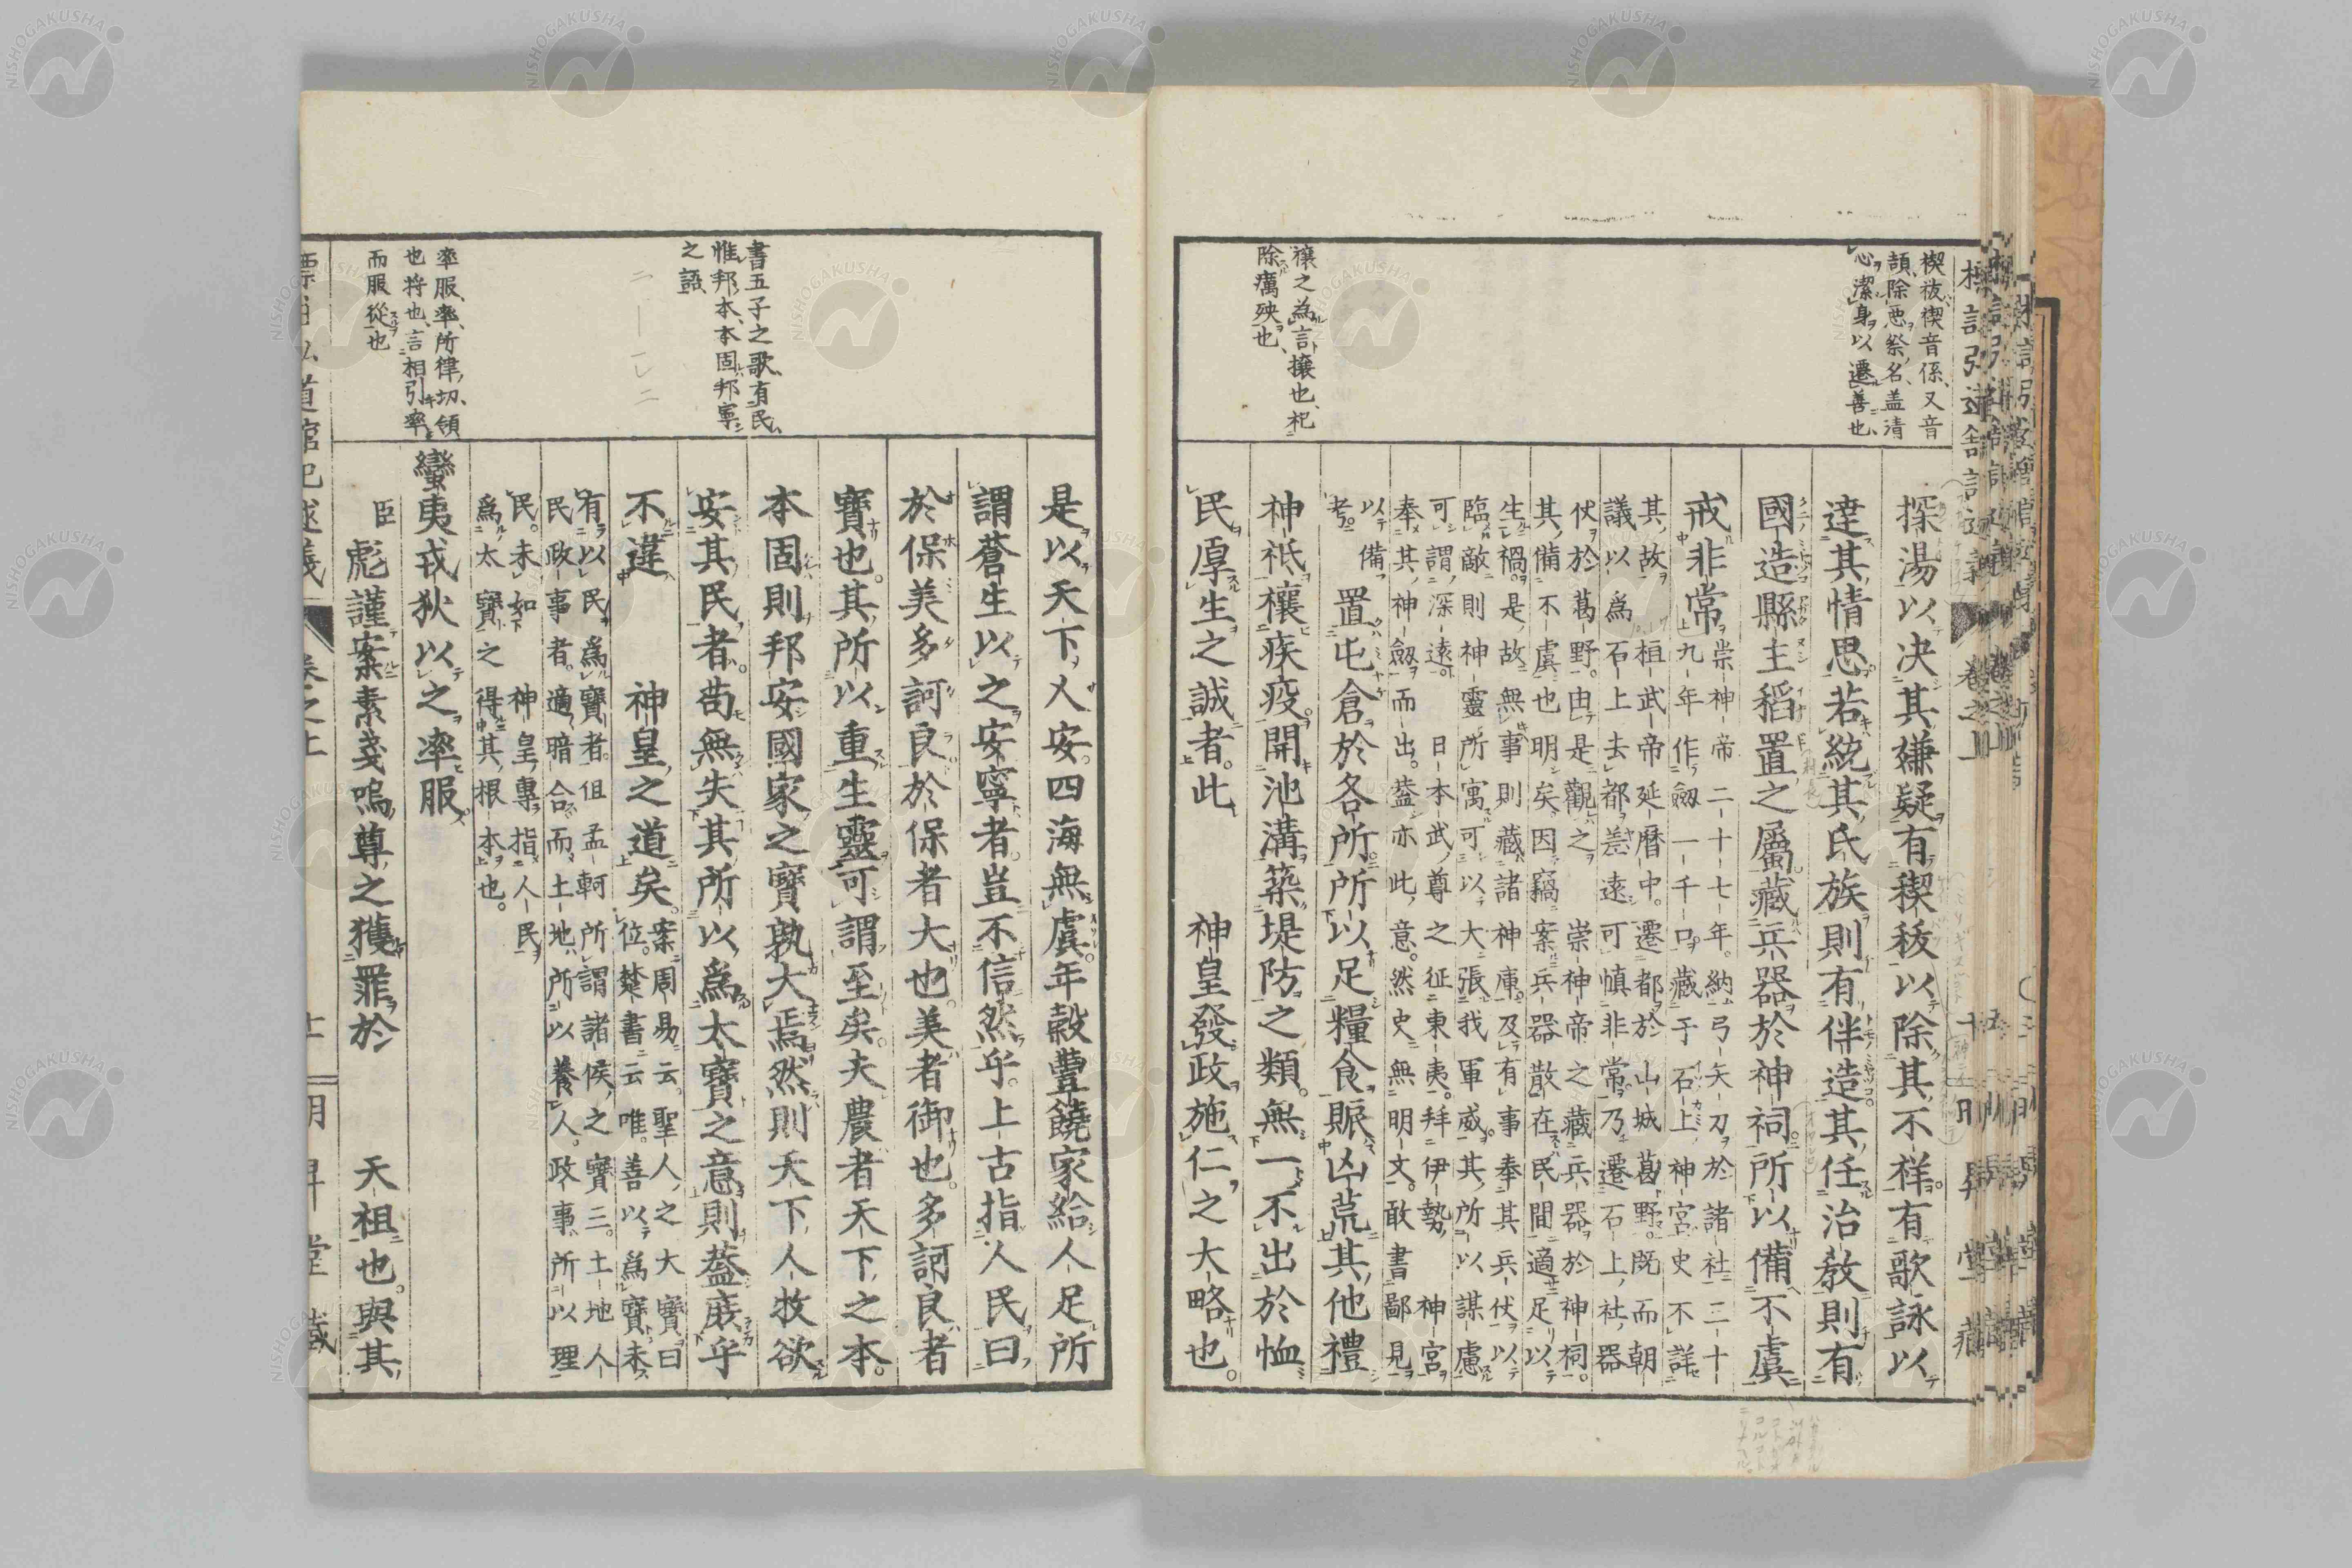 禊祓、禊音係、又音
頡、除惡祭名、盖清
心潔身以遷善也、
探湯以決其嫌疑有禊祓以除其不祥有歌詠以
達其情思若統其氏族則有伴造其任治敎則有
國造縣主稻置之屬藏兵器於神祠所以備不虞
戒非常
崇神帝二十七年納弓矢刀於諸社三十
九年作劔一千口藏于石上神宮史不詳
其故桓武帝延曆中遷都於山城葛野既而朝
議以爲石上去都差遠可愼非常乃遷石上社器
伏於葛野由是觀之崇神帝之藏兵器於神祠
其備不虞也明矣因竊案兵器散在民間適足以
生禍是故無事則藏諸神庫及有事奉其兵伏以
臨敵則神靈所寓可以大張我軍威其所以謀慮
可謂深遠日本武尊之征東夷拜伊勢神宮
奉其神劔而出蓋亦此意然史無明文敢書鄙見
以備
考
置屯倉於各所所以足糧食賑凶荒其他禮
禳之為言、攘也、祀
除癘殃也、
神祇禳疾疫開池溝築堤防之類無一不出於恤
民厚生之誠者此 神皇發政施仁之大略也。
是以天下乂安四海無虞年穀豐饒家給人足所
謂蒼生以之安寧者豈不信然乎上古指人民曰
於保美多訶良於保者大也美者御也多訶良者
寶也其所以重生靈可謂至矣夫農者天下之本
書五子之歌、有民
惟邦本、本固邦寧
之語
本固則邦安國家之寶孰大焉然則天下人牧欲
安其民者苟無失其所以爲太寶之意則蓋庶乎
不違 神皇之道矣
案周易云聖人之大寶曰
位楚書云唯善以爲寶未
有以民爲寶者但孟軻所謂諸侯之寶三土地人
民政事者適暗合而土地所以養人政事所以理
民未如 神皇專指人民
爲太寶之得其根本也
率服、率、所律切、領
也、将也、言相引率
而服從也
蠻夷戎狄以之率服
臣彪謹案素戔嗚尊之獲罪於 天祖也與其